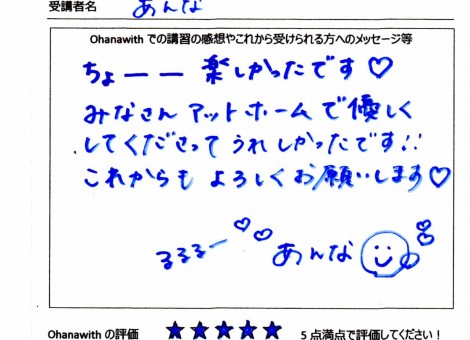 受講者名 あんな
Ohanawith での講習の感想やこれから受けられる方へのメッセージ等
ちょーー楽しかったです♡
みなさんアットホームで優しく
してくださってうれしかったです!!
これからもよろしくお願いします♡
るるるー♡♡ あんな
Ohanawith の評価 ★★★★★ 5 点満点で評価してください!